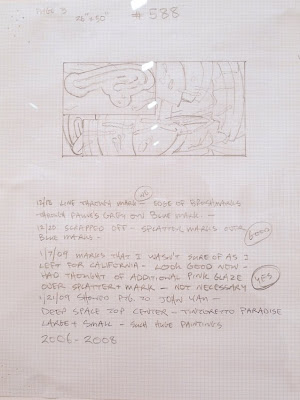 26" x 50" # 588
NO
12/18 LINE THROUGH MARKS = EDGE OF BRUSHMARKS
THROUGH PAYNE'S GREY OVER BLUE MARK. —
12/20 SCRAPPED OFF - SPLATTER MARKS OVER
BLUE MARKS. GOOD
1/7/09 MARKS THAT I WASN'T SURE OF AS I
LEFT FOR CALIFORNIA - LOOK GOOD NOW -
HAD THOUGHT OF ADDITIONAL PINK GLAZE YES
OVER SPLATTER + MARK - NOT NECESSARY
1/21/09 SHOWED PTG. TO JOHN YAU -
DEEP SPACE TOP CENTER - TINTORETTO PARADISE
LARGE + SMALL - SUCH HUGE PAINTINGS
2006-2008